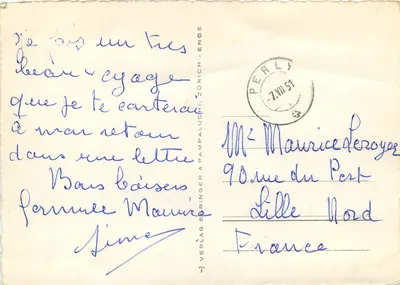 je fais un très
beau voyage
que je te conterai
à mon retour
dans une lettre
Bons baisers
Maurice
VERLAG BERINGER & PAMPALUCHI, ZÜRICH - ENGE
PERLY
-7.VII.51
Mr Maurice Leroyer
90 rue du Port
Lille Nord
France